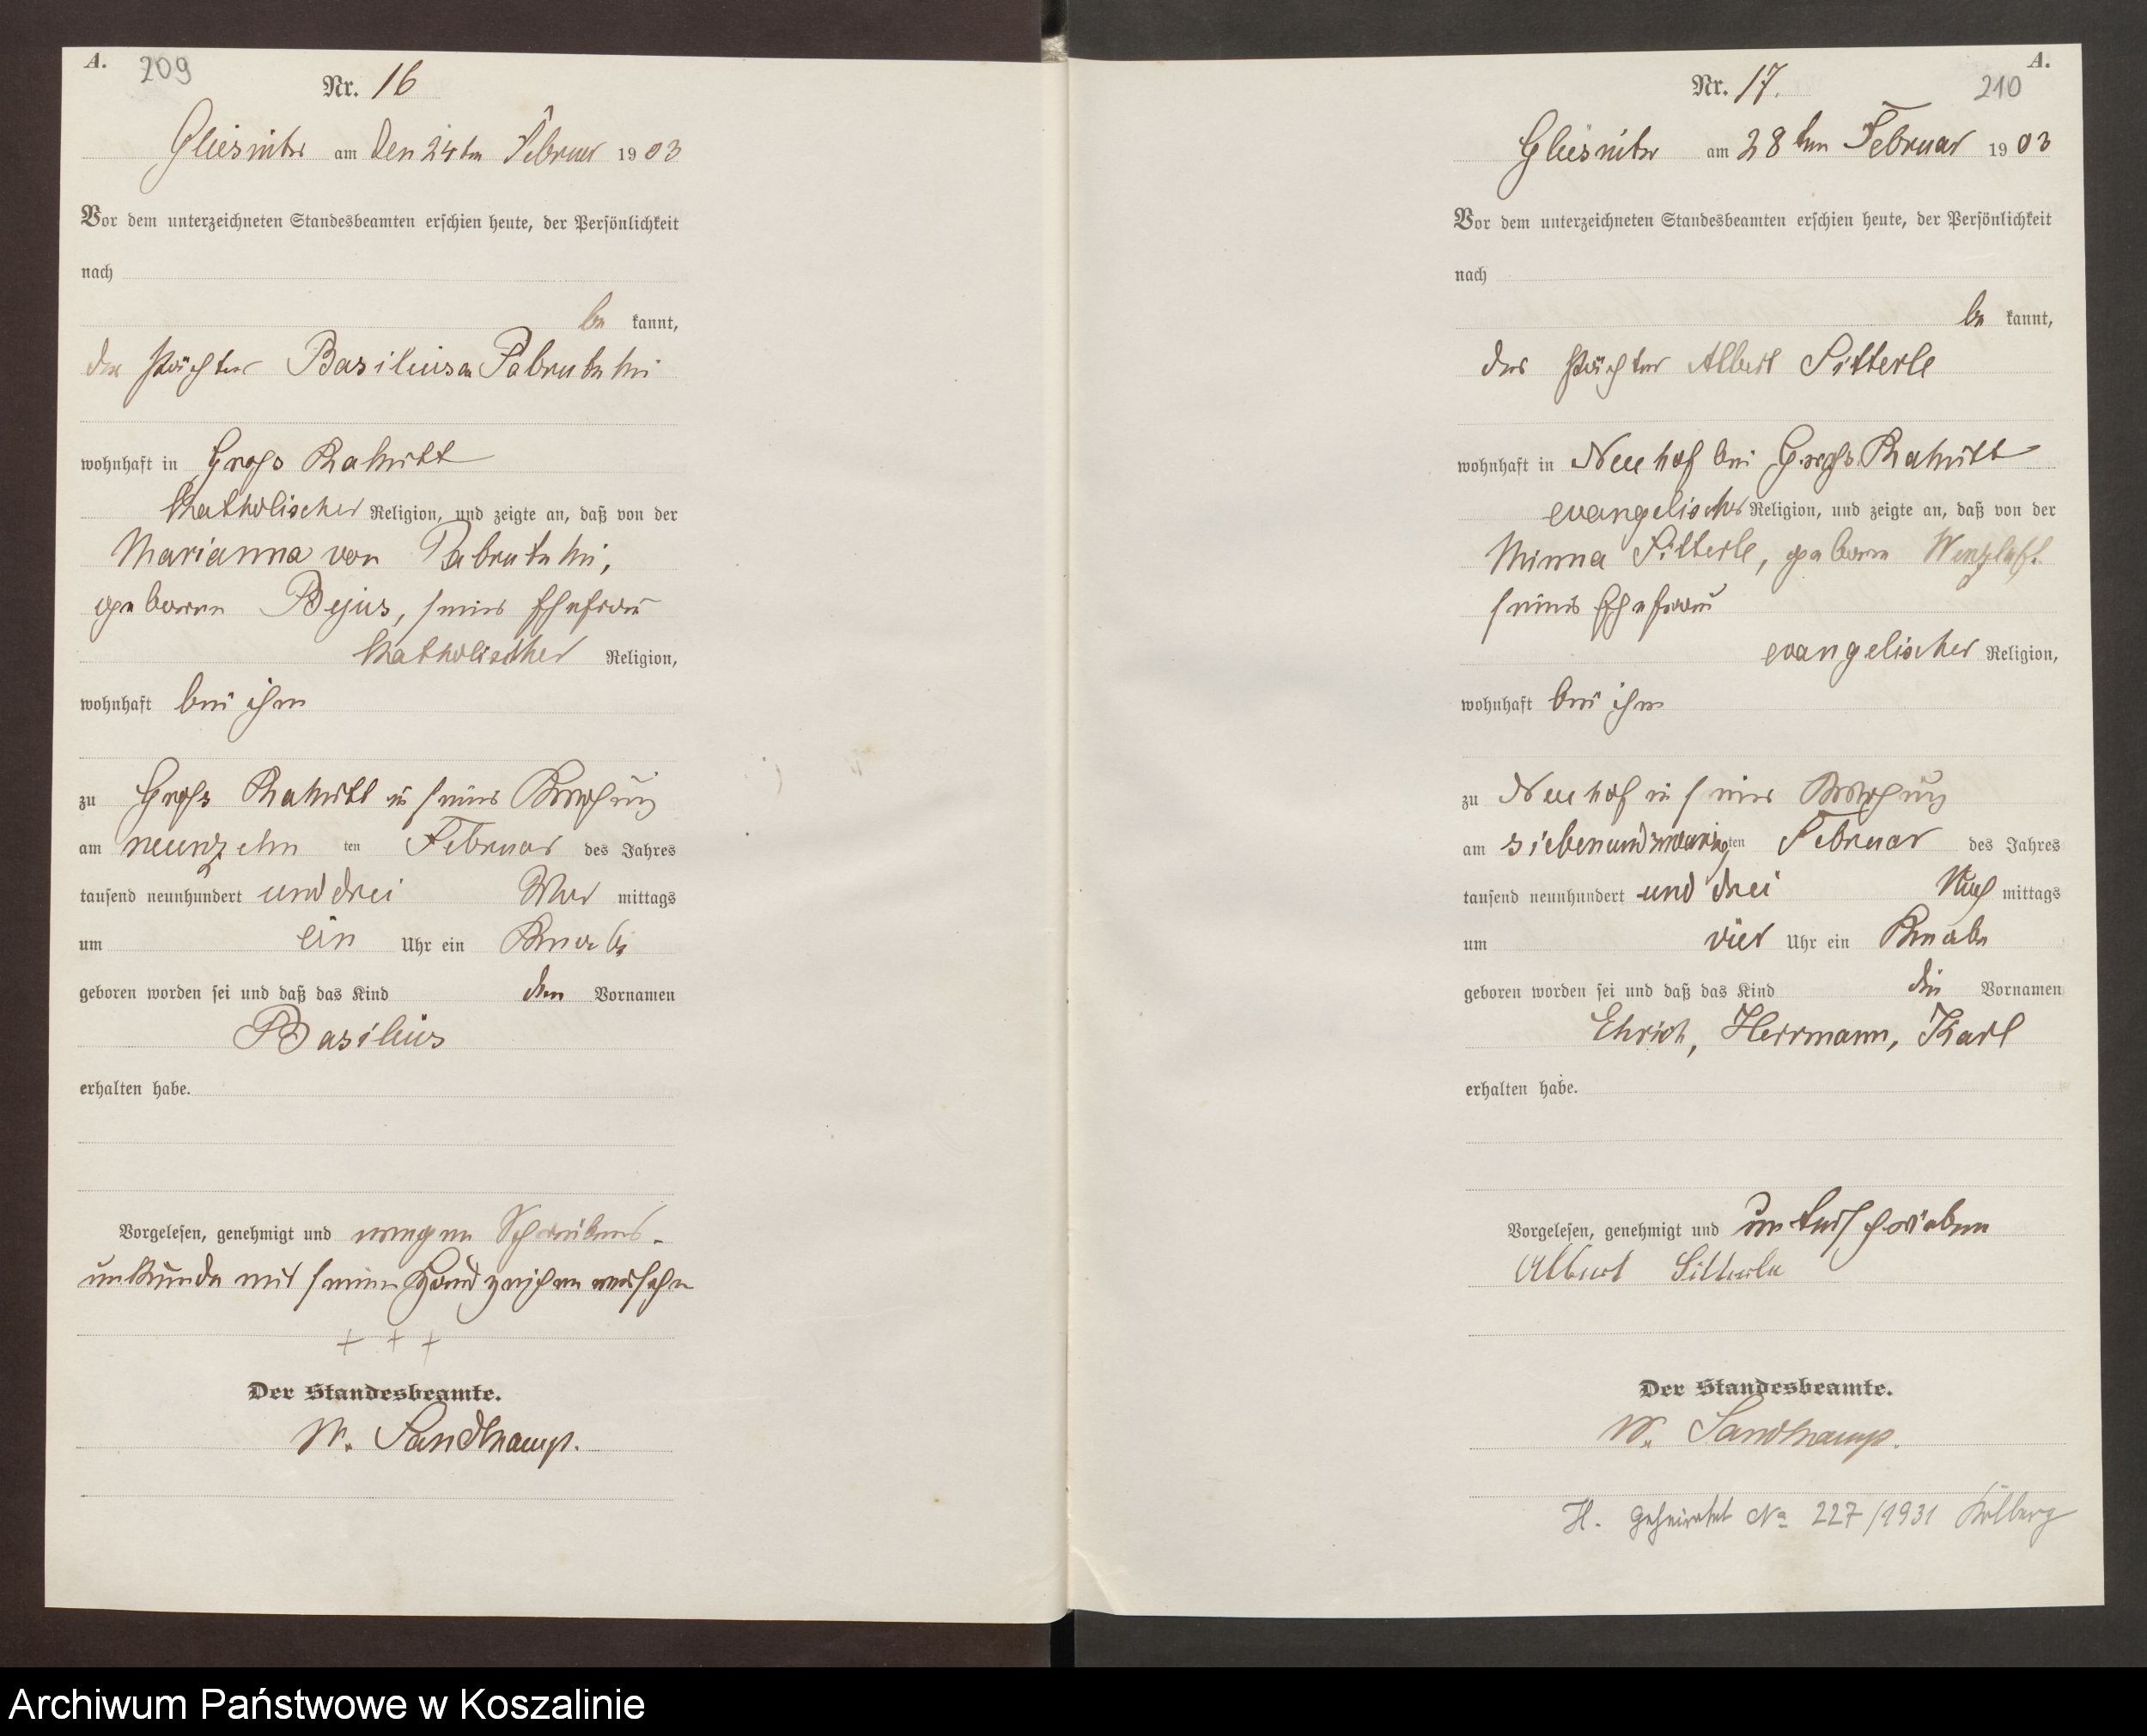 A. 209
Nr. 16
Gliesnitz am den 24ten Februar 1903
Vor dem unterzeichneten Standesbeamten erschien heute, der Persönlichkeit
nach
be kannt,
der Pächter Basilius
wohnhaft in Gross Rakitt
katholischer Religion, und zeigte an, daß von der
Marianna von
geborene seiner Ehefrau
katholischer Religion,
wohnhaft bei ihm
zu Gross Rakitt in seiner Wohnung
am neunzehn ten Februar des Jahres
tausend neunhundert und drei Vor mittags
um ein Uhr ein Knabe
geboren worden sei und daß das Kind den Vornamen
Basilius
erhalten habe.
Vorgelesen, genehmigt und wegen Schreibens-
unkunde mit seinem Handzeichen versehen
+ + +
Der Standesbeamte.
W. Sandkamp.
A.
Nr. 17. 210
Gliesnitz am 28ten Februar 1903
Vor dem unterzeichneten Standesbeamten erschien heute, der Persönlichkeit
nach
be kannt,
der Pächter Albert Sitterle
wohnhaft in Neuhof bei Gross Rakitt
evangelischer Religion, und zeigte an, daß von der
Minna Sitterle, geborene Wenzlaff.
seiner Ehefrau
evangelischer Religion,
wohnhaft bei ihm
zu Neuhof in seiner Wohnung
am siebenundzwanzigten Februar des Jahres
tausend neunhundert und drei Nach mittags
um vier Uhr ein Knabe
geboren worden sei und daß das Kind die Vornamen
Ehrich, Herrmann, Karl
erhalten habe.
Vorgelesen, genehmigt und unterschrieben
Albert Sitterle
Der Standesbeamte.
W. Sandkamp.
H. geheiratet No 227/1931 Kolberg
Archiwum Państwowe w Koszalinie